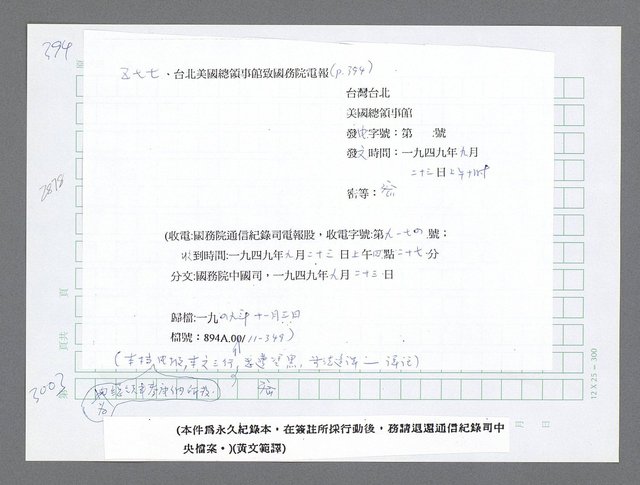 394
五七七、台北美國總領事館致國務院電報(p.394)
台灣台北
美國總領事館
發電字號：第 號
發文時間：一九四九年九月
二十三日上午十時
密等：密
2878
(收電:國務院通信紀錄司電報股，收電字號:第九一七四號；
收到時間:一九四九年九月二十三日上午四點二十七分
分文:國務院中國司，一九四九年九月二十三日
頁
歸檔:一九四九年十一月三日
檔號：894A.00/11-349)
共頁
3003
第
密
12 X 25 — 300
月 日
(本件爲永久紀錄本，在簽註所採行動後，務請退還通信紀錄司中
央檔案。)(黃文範譯)